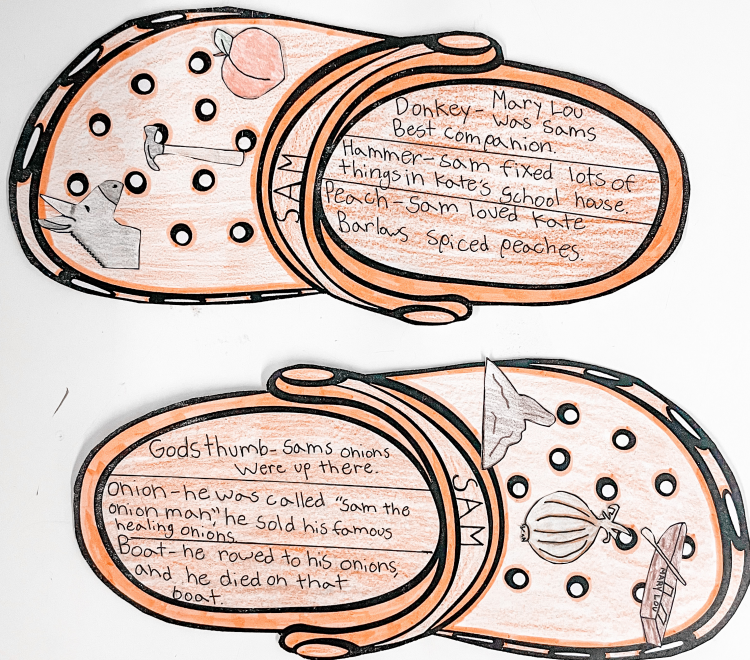 SAM
Donkey- Mary Lou
was Sams
Best companion.
Hammer- Sam fixed lots of
things in Kate's School house.
Peach- Sam loved Kate
Barlows spiced peaches.
Gods thumb- Sams onions
were up there.
Onion- he was called "Sam the
onion man", he sold his famous
healing onions
Boat- he rowed to his onions,
and he died on that
boat.
SAM
MARY LOU